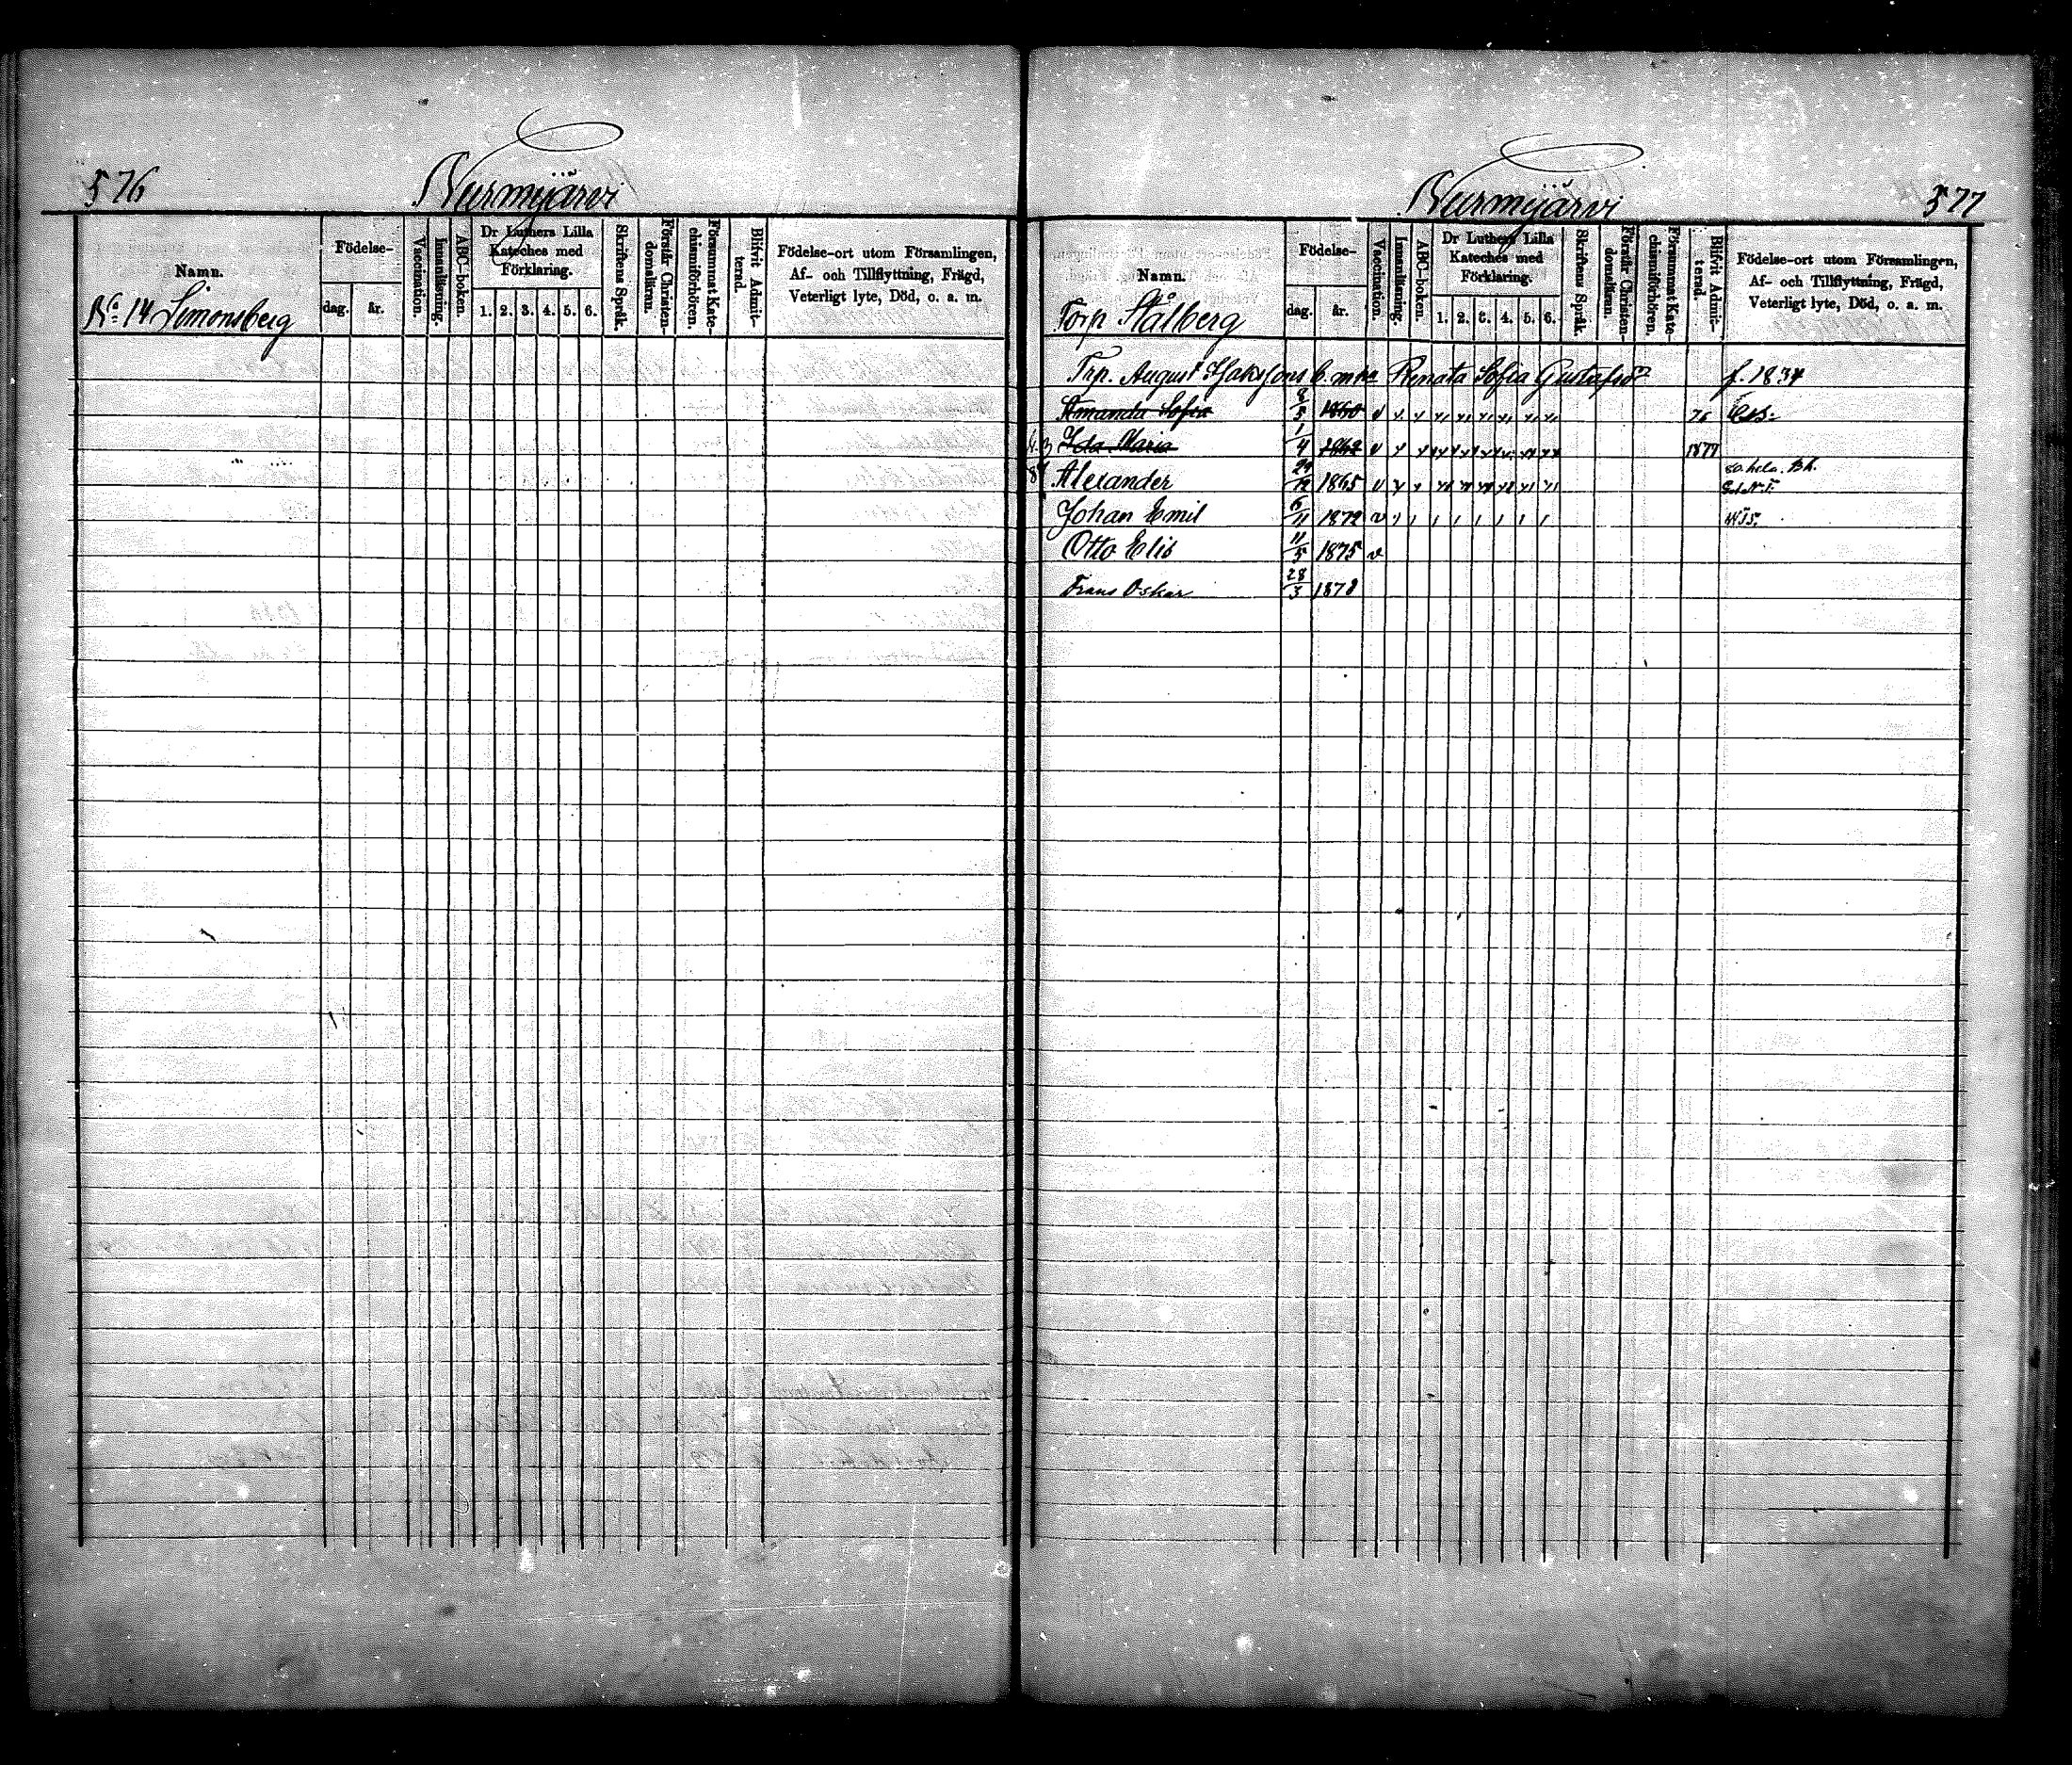 576
Nurmijärvi
Namn.
Födelse-
dag.
år.
Vaccination.
Innanläsning.
ABC-boken.
Dr Luthers Lilla
Kateches med
Förklaring.
1. 2. 3. 4. 5. 6.
Skriftens Språk.
Förstår Christen-
domsläran.
Försummat Kate-
chismiförhören.
Blifvit Admit-
terad.
Födelse-ort utom Församlingen,
Af- och Tillflyttning, Frägd,
Veterligt lyte, Död, o. a. m.
No 14 Simonsberg
Nurmijärvi
577
Namn.
Födelse-
dag.
år.
Vaccination.
Innanläsning.
ABC-boken.
Dr Luthers Lilla
Kateches med
Förklaring.
1. 2. 3. 4. 5. 6.
Skriftens Språk.
Förstår Christen-
domsläran.
Försummat Kate-
chismiförhören.
Blifvit Admit-
terad.
Födelse-ort utom Församlingen,
Af- och Tillflyttning, Frägd,
Veterligt lyte, Död, o. a. m.
Torp Stålberg
Trp. August Renata Sofia Gustafsdr f. 1834
Amanda Sofia 1860 v 76
Ida Maria 1/4 1862 v 1877
Alexander 29/12 1865 v
Johan Emil 6/11 1872 v
Otto Elis 11/5 1875 v
Frans Oskar 28/3 1878